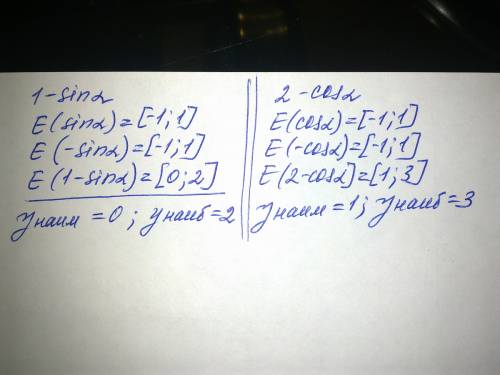 1-sinα
E(sinα)=[-1;1]
E(-sinα)=[-1;1]
E(1-sinα)=[0;2]
yнаим =0; yнаиб=2
2-cosα
E(cosα)=[-1;1]
E(-cosα)=[-1;1]
E(2-cosα]=[1;3]
yнаим=1; yнаиб=3